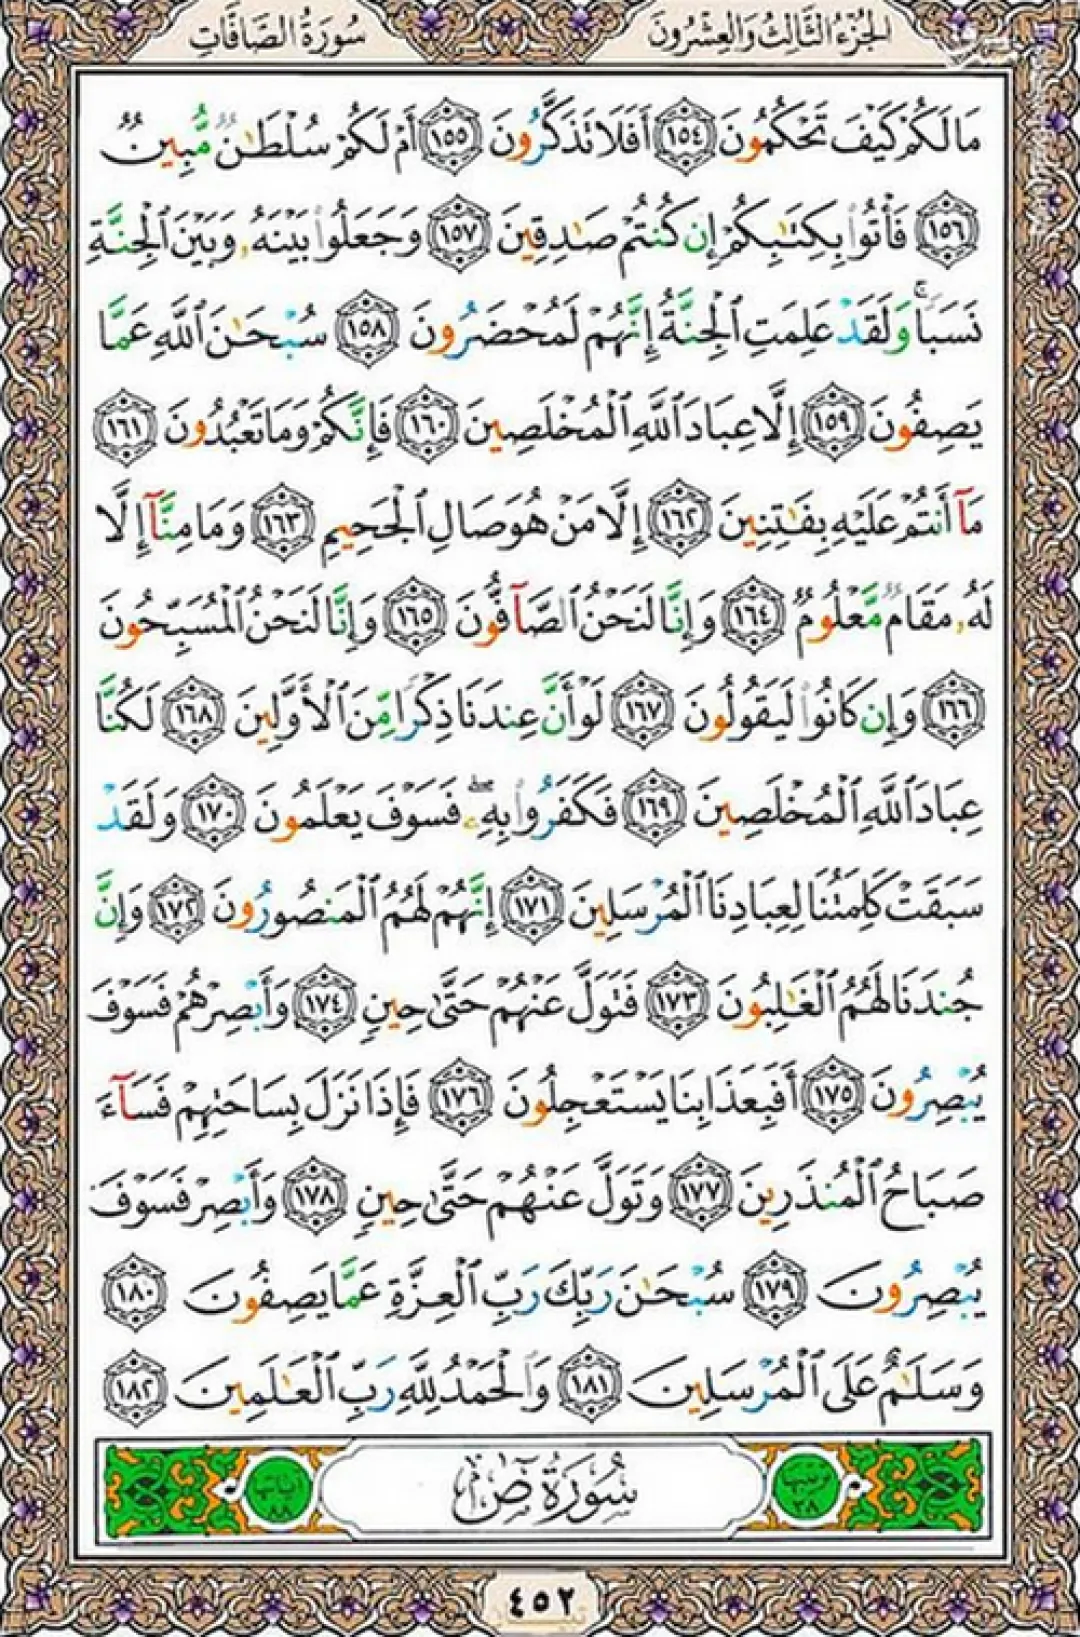 الجُزْءُ الثَّالِثُ وَالعِشْرُونَ
سُورَةُ الصَّافَّاتِ
مَا لَكُمْ كَيْفَ تَحْكُمُونَ ١٥٤ أَفَلَا تَذَكَّرُونَ ١٥٥ أَمْ لَكُمْ سُلْطَٰنٌ مُّبِينٌ
١٥٦ فَأْتُوا۟ بِكِتَٰبِكُمْ إِن كُنتُمْ صَٰدِقِينَ ١٥٧ وَجَعَلُوا۟ بَيْنَهُۥ وَبَيْنَ ٱلْجِنَّةِ
نَسَبًاۚ وَلَقَدْ عَلِمَتِ ٱلْجِنَّةُ إِنَّهُمْ لَمُحْضَرُونَ ١٥٨ سُبْحَٰنَ ٱللَّهِ عَمَّا
يَصِفُونَ ١٥٩ إِلَّا عِبَادَ ٱللَّهِ ٱلْمُخْلَصِينَ ١٦٠ فَإِنَّكُمْ وَمَا تَعْبُدُونَ ١٦١
مَآ أَنتُمْ عَلَيْهِ بِفَٰتِنِينَ ١٦٢ إِلَّا مَنْ هُوَ صَالِ ٱلْجَحِيمِ ١٦٣ وَمَا مِنَّآ إِلَّا
لَهُۥ مَقَامٌ مَّعْلُومٌ ١٦٤ وَإِنَّا لَنَحْنُ ٱلصَّآفُّونَ ١٦٥ وَإِنَّا لَنَحْنُ ٱلْمُسَبِّحُونَ
١٦٦ وَإِن كَانُوا۟ لَيَقُولُونَ ١٦٧ لَوْ أَنَّ عِندَنَا ذِكْرًا مِّنَ ٱلْأَوَّلِينَ ١٦٨ لَكُنَّا
عِبَادَ ٱللَّهِ ٱلْمُخْلَصِينَ ١٦٩ فَكَفَرُوا۟ بِهِۦۖ فَسَوْفَ يَعْلَمُونَ ١٧٠ وَلَقَدْ
سَبَقَتْ كَلِمَتُنَا لِعِبَادِنَا ٱلْمُرْسَلِينَ ١٧١ إِنَّهُمْ لَهُمُ ٱلْمَنصُورُونَ ١٧٢ وَإِنَّ
جُندَنَا لَهُمُ ٱلْغَٰلِبُونَ ١٧٣ فَتَوَلَّ عَنْهُمْ حَتَّىٰ حِينٍ ١٧٤ وَأَبْصِرْهُمْ فَسَوْفَ
يُبْصِرُونَ ١٧٥ أَفَبِعَذَابِنَا يَسْتَعْجِلُونَ ١٧٦ فَإِذَا نَزَلَ بِسَاحَتِهِمْ فَسَآءَ
صَبَاحُ ٱلْمُنذَرِينَ ١٧٧ وَتَوَلَّ عَنْهُمْ حَتَّىٰ حِينٍ ١٧٨ وَأَبْصِرْ فَسَوْفَ
يُبْصِرُونَ ١٧٩ سُبْحَٰنَ رَبِّكَ رَبِّ ٱلْعِزَّةِ عَمَّا يَصِفُونَ ١٨٠
وَسَلَٰمٌ عَلَى ٱلْمُرْسَلِينَ ١٨١ وَٱلْحَمْدُ لِلَّهِ رَبِّ ٱلْعَٰلَمِينَ ١٨٢
ترتيبها ٣٨
سُورَةُ صٓ
آياتها ٨٨
٤٥٢